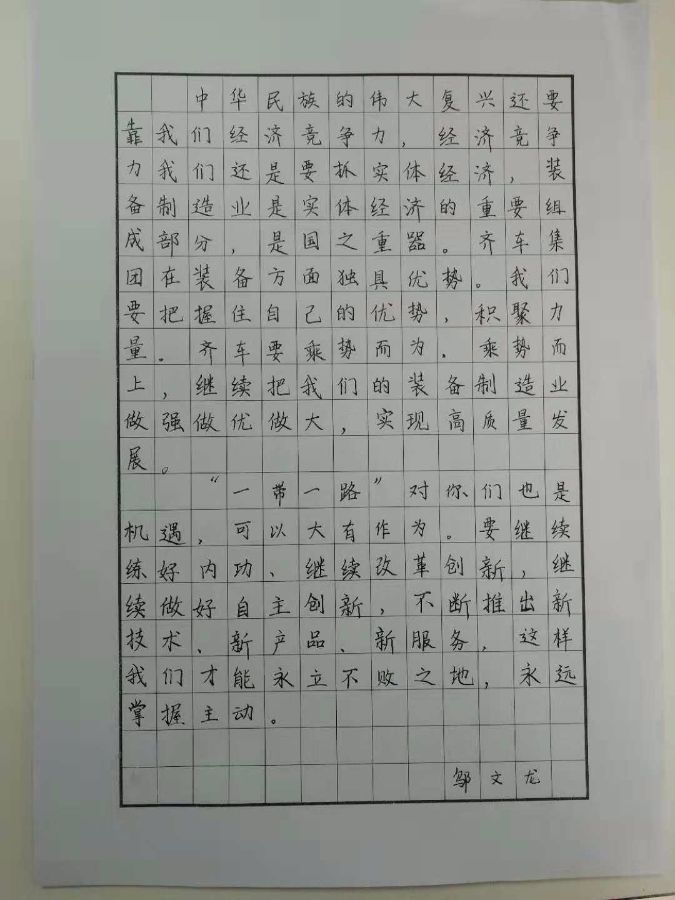 中华民族的伟大复兴还要
靠我们经济竞争力，经济竞争
力我们还是要抓实体经济，装
备制造业是实体经济的重要组
成部分，是国之重器。齐车集
团在装备方面独具优势。我们
要把握住自己的优势，积聚力
量。齐车要乘势而为，乘势而
上，继续把我们的装备制造业
做强做优做大，实现高质量发
展。
“一带一路”对你们也是
机遇，可以大有作为。要继续
练好内功、继续改革创新，继
续做好自主创新，不断推出新
技术、新产品、新服务，这样
我们才能永立不败之地，永远
掌握主动。
邹文龙